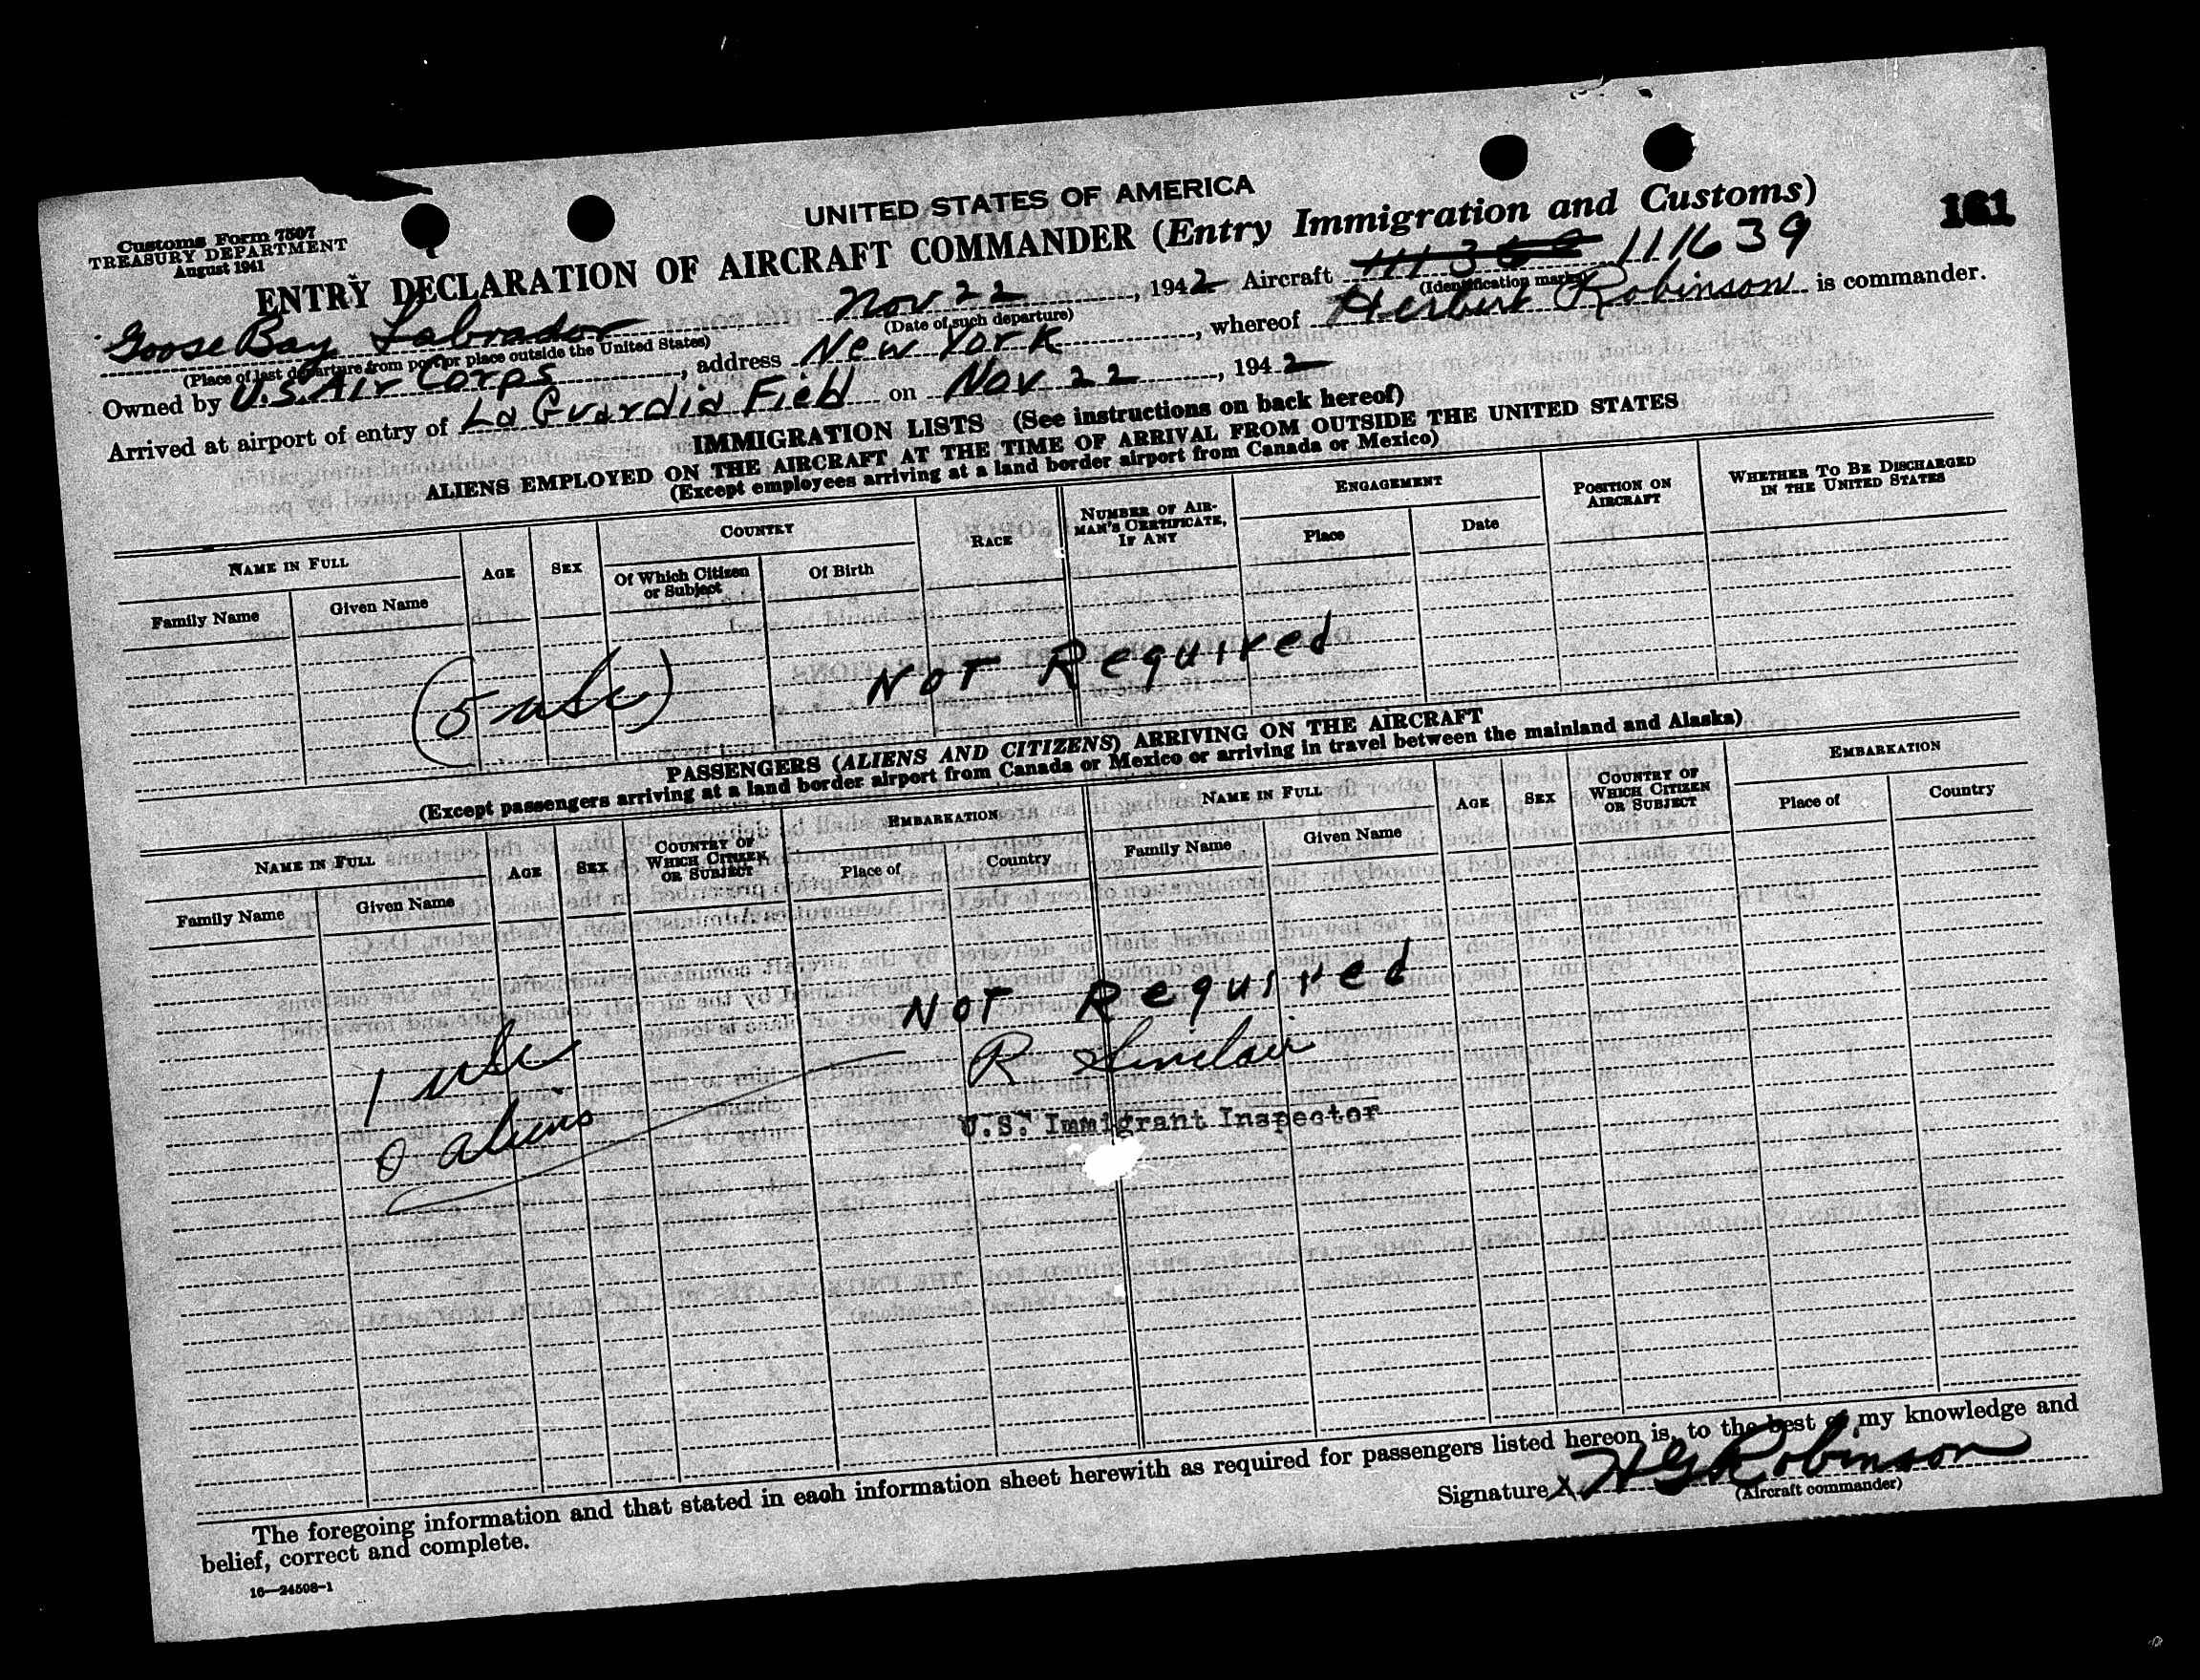 Customs Form 7507
TREASURY DEPARTMENT
August 1941
UNITED STATES OF AMERICA
161
ENTRY DECLARATION OF AIRCRAFT COMMANDER (Entry Immigration and Customs)
Goose Bay Labrador Nov 22, 1942 Aircraft 111639
(Place of last departure from port or place outside the United States) (Date of such departure) (Identification marks)
Owned by U.S. Air Corps, address New York, whereof Herbert Robinson is commander.
Arrived at airport of entry of La Guardia Field on Nov 22, 1942
IMMIGRATION LISTS (See instructions on back hereof)
ALIENS EMPLOYED ON THE AIRCRAFT AT THE TIME OF ARRIVAL FROM OUTSIDE THE UNITED STATES
(Except employees arriving at a land border airport from Canada or Mexico)
NAME IN FULL AGE SEX COUNTRY RACE NUMBER OF AIRMAN'S CERTIFICATE, IF ANY ENGAGEMENT POSITION ON AIRCRAFT WHETHER TO BE DISCHARGED IN THE UNITED STATES
Family Name Given Name Of Which Citizen or Subject Of Birth Place Date
(5 usc) Not Required
PASSENGERS (ALIENS AND CITIZENS) ARRIVING ON THE AIRCRAFT
(Except passengers arriving at a land border airport from Canada or Mexico or arriving in travel between the mainland and Alaska)
NAME IN FULL AGE SEX COUNTRY OF WHICH CITIZEN OR SUBJECT EMBARKATION NAME IN FULL AGE SEX COUNTRY OF WHICH CITIZEN OR SUBJECT EMBARKATION
Family Name Given Name Place of Country Family Name Given Name Place of Country
Not Required
1 usc R Sinclair
0 aliens
U.S. Immigrant Inspector
The foregoing information and that stated in each information sheet herewith as required for passengers listed hereon is, to the best of my knowledge and
belief, correct and complete.
Signature X H G Robinson
(Aircraft commander)
16—24508-1